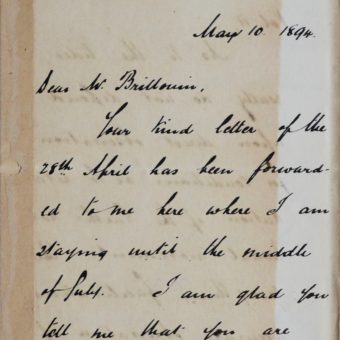 May 10. 1894.
Dear M. Brillouin,
Your kind letter of the
28th April has been forward-
ed to me here where I am
staying until the middle
of July. I am glad you
tell me that you are